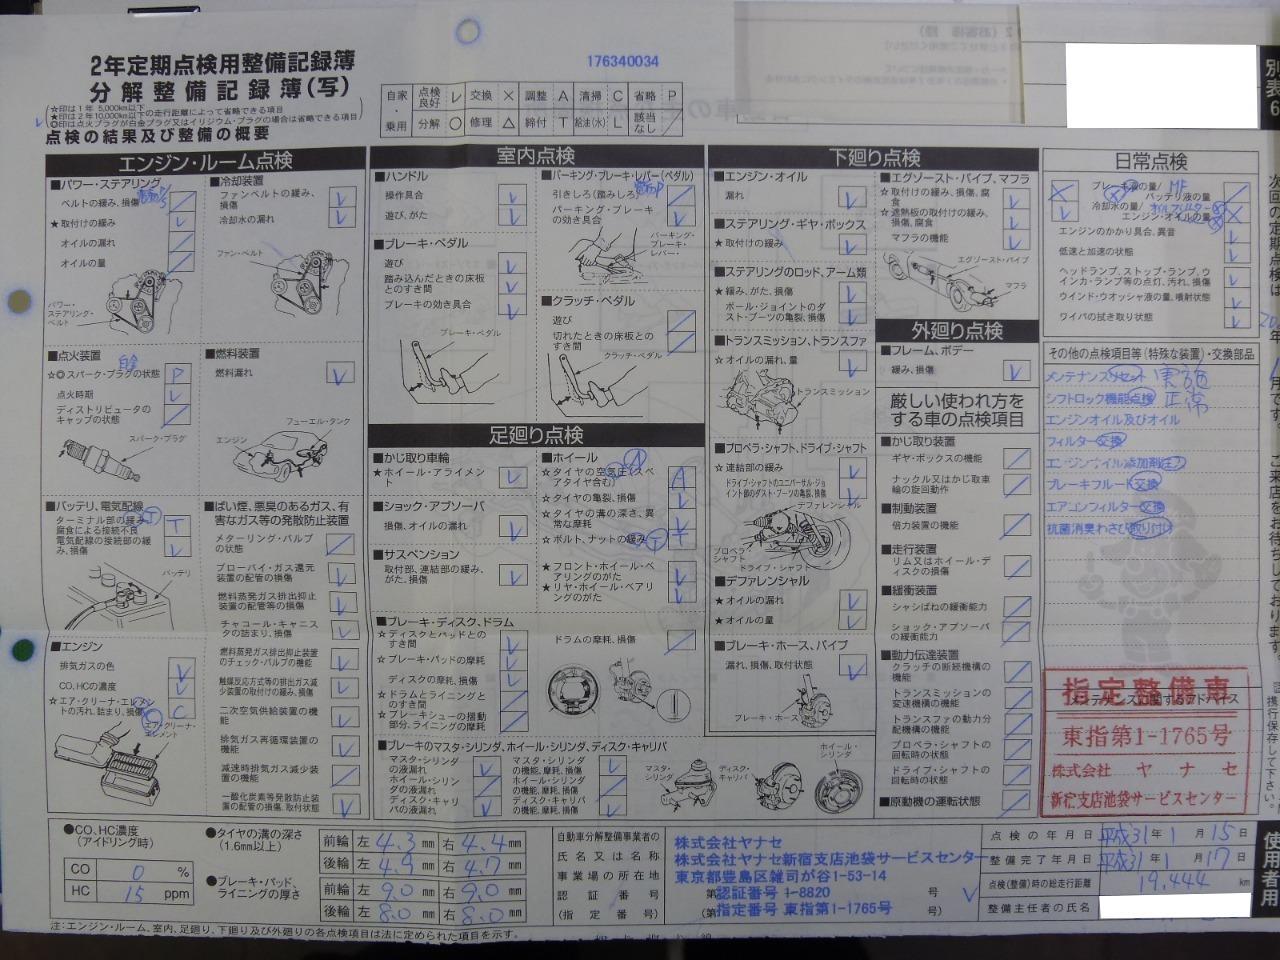 2年定期点検用整備記録簿
分解整備記録簿(写)
☆印は1年 5,000km以下
★印は2年10,000km以下の走行距離によって省略できる項目
◎印は点火プラグが白金プラグ又はイリジウム・プラグの場合は省略できる項目
点検の結果及び整備の概要
176340034
自家・乗用
点検良好 レ 交換 × 調整 A 清掃 C 省略 P
分解 ○ 修理 △ 締付 T 給油(水) L 該当なし ／
別表6
エンジン・ルーム点検
■パワー・ステアリング
ベルトの緩み、損傷
★取付けの緩み
オイルの漏れ
オイルの量
パワー・ステアリング・ベルト
■冷却装置
ファンベルトの緩み、損傷
冷却水の漏れ
ファン・ベルト
■点火装置
白金
☆◎スパーク・プラグの状態 P
点火時期
ディストリビュータのキャップの状態
スパーク・プラグ
■燃料装置
燃料漏れ
フューエル・タンク
エンジン
■バッテリ、電気配線
ターミナル部の緩み、腐食による接続不良 T
電気配線の接続部の緩み、損傷
バッテリ
■ばい煙、悪臭のあるガス、有害なガス等の発散防止装置
メターリング・バルブの状態
ブローバイ・ガス還元装置の配管の損傷
燃料蒸発ガス排出抑止装置の配管等の損傷
チャコール・キャニスタの詰まり、損傷
燃料蒸発ガス排出抑止装置のチェック・バルブの機能
触媒反応方式等の排出ガス減少装置の取付けの緩み、損傷
二次空気供給装置の機能
排気ガス再循環装置の機能
減速時排気ガス減少装置の機能
一酸化炭素等発散防止装置の配管の損傷、取付状態
■エンジン
排気ガスの色
CO、HCの濃度
☆エア・クリーナ・エレメントの汚れ、詰まり、損傷 C
エア・クリーナ・エレメント
室内点検
■ハンドル
操作具合
遊び、がた
■ブレーキ・ペダル
遊び
踏み込んだときの床板とのすき間
ブレーキの効き具合
ブレーキ・ペダル
■パーキング・ブレーキ・レバー(ペダル)
引きしろ(踏みしろ)
パーキング・ブレーキの効き具合
パーキング・ブレーキ・レバー
■クラッチ・ペダル
遊び
切れたときの床板とのすき間
クラッチ・ペダル
足廻り点検
■かじ取り車輪
★ホイール・アライメント
■ショック・アブソーバ
損傷、オイルの漏れ
■サスペンション
取付部、連結部の緩み、がた、損傷
■ホイール
☆タイヤの空気圧(スペアタイヤ含む) A
☆タイヤの亀裂、損傷
☆タイヤの溝の深さ、異常な摩耗
☆ボルト、ナットの緩み T
★フロント・ホイール・ベアリングのがた
★リヤ・ホイール・ベアリングのがた
■ブレーキ・ディスク、ドラム
☆ディスクとパッドとのすき間
☆ブレーキ・パッドの摩耗
ディスクの摩耗、損傷
☆ドラムとライニングとのすき間
☆ブレーキシューの摺動部分、ライニングの摩耗
ドラムの摩耗、損傷
■ブレーキのマスタ・シリンダ、ホイール・シリンダ、ディスク・キャリパ
マスタ・シリンダの液漏れ
ホイール・シリンダの液漏れ
ディスク・キャリパの液漏れ
マスタ・シリンダの機能、摩耗、損傷
ホイール・シリンダの機能、摩耗、損傷
ディスク・キャリパの機能、摩耗、損傷
マスタ・シリンダ
ディスク・キャリパ
ホイール・シリンダ
下廻り点検
■エンジン・オイル
漏れ
■ステアリング・ギヤ・ボックス
★取付けの緩み
■ステアリングのロッド、アーム類
★緩み、がた、損傷
ボール・ジョイントのダスト・ブーツの亀裂、損傷
■トランスミッション、トランスファ
☆オイルの漏れ、量
トランスミッション
■プロペラ・シャフト、ドライブ・シャフト
★連結部の緩み
ドライブ・シャフトのユニバーサル・ジョイント部のダスト・ブーツの亀裂、損傷
デファレンシャル
プロペラ・シャフト
ドライブ・シャフト
■デファレンシャル
★オイルの漏れ
★オイルの量
■ブレーキ・ホース、パイプ
漏れ、損傷、取付状態
ブレーキ・ホース
■エグゾースト・パイプ、マフラ
☆取付けの緩み、損傷、腐食
☆遮熱板の取付けの緩み、損傷、腐食
マフラの機能
エグゾースト・パイプ
マフラ
外廻り点検
■フレーム、ボデー
緩み、損傷
厳しい使われ方をする車の点検項目
■かじ取り装置
ギヤ・ボックスの機能
ナックル又はかじ取車輪の旋回動作
■制動装置
倍力装置の機能
■走行装置
リム又はホイール・ディスクの損傷
■緩衝装置
シャシばねの緩衝能力
ショック・アブソーバの緩衝能力
■動力伝達装置
クラッチの断続機構の機能
トランスミッションの変速機構の機能
トランスファの動力分配機構の機能
プロペラ・シャフトの回転時の状態
ドライブ・シャフトの回転時の状態
■原動機の運転状態
日常点検
ブレーキ液の量/ MF バッテリ液の量
冷却水の量/ オイルフィルター
エンジン・オイルの量
エンジンのかかり具合、異音
低速と加速の状態
ヘッドランプ、ストップ・ランプ、ウインカ・ランプ等の点灯、汚れ、損傷
ウインド・ウオッシャ液の量、噴射状態
ワイパの拭き取り状態
その他の点検項目等(特殊な装置)・交換部品
メンテナンスリセット 実施
シフトロック機能点検 正常
エンジンオイル及びオイル
フィルター交換
エンジンオイル添加剤注入
ブレーキフルード交換
エアコンフィルター交換
抗菌消臭わさび取り付け
メンテナンスに関するアドバイス
指定整備車
東指第1-1765号
株式会社 ヤナセ
新宿支店池袋サービスセンター
●CO、HC濃度(アイドリング時)
CO 0 %
HC 15 ppm
●タイヤの溝の深さ(1.6mm以上)
前輪 左 4.3 mm 右 4.4 mm
後輪 左 4.9 mm 右 4.7 mm
●ブレーキ・パッド、ライニングの厚さ
前輪 左 9.0 mm 右 9.0 mm
後輪 左 8.0 mm 右 8.0 mm
自動車分解整備事業者の氏名又は名称
事業場の所在地
認証番号
(指定番号)
株式会社ヤナセ
株式会社ヤナセ新宿支店池袋サービスセンター
東京都豊島区雑司が谷1-53-14
第 認証番号 1-8820 号
(第 指定番号 東指第1-1765号 号)
点検の年月日 平成31年 1月 15日
整備完了年月日 平成31年 1月 17日
点検(整備)時の総走行距離 19,444 km
整備主任者の氏名
使用者用
注:エンジン・ルーム、室内、足廻り、下廻り及び外廻りの各点検項目は法に定められた項目を示す。